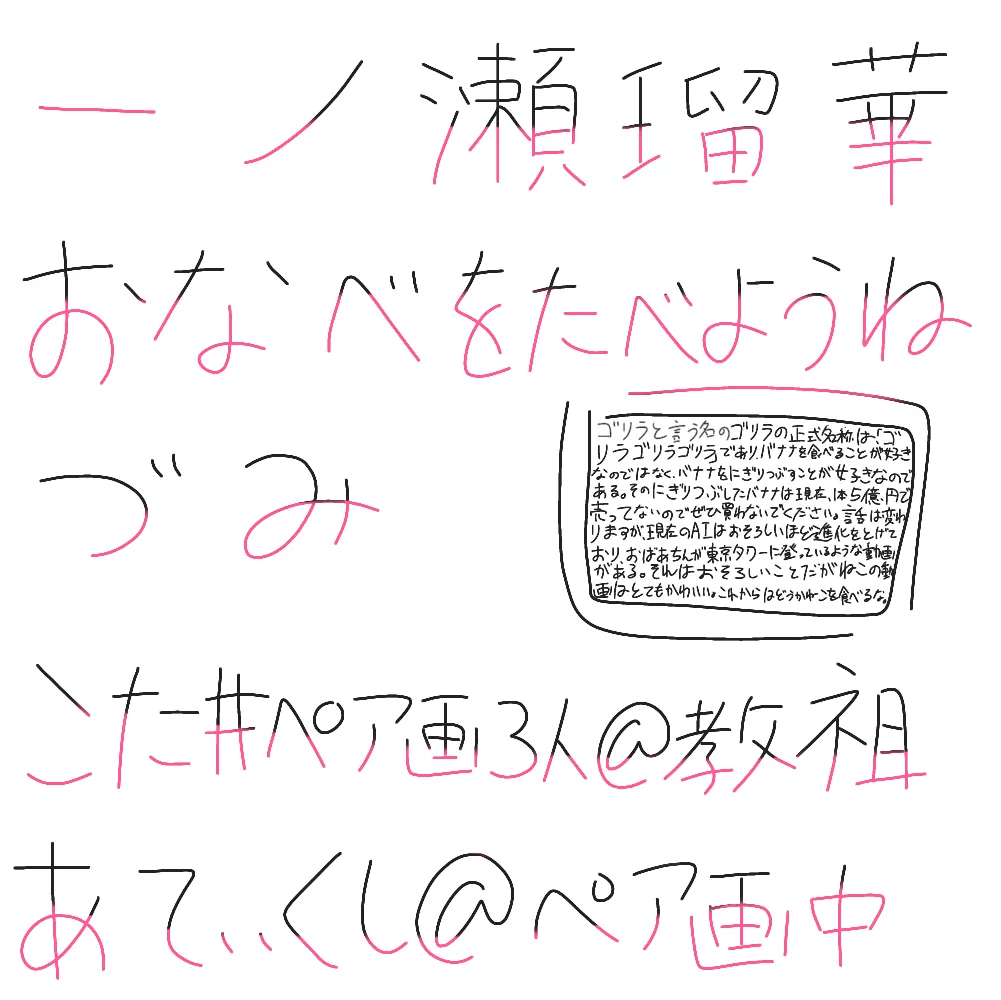 一ノ瀬瑠華
おなべをたべようね
づみ
ゴリラと言う名のゴリラの正式名称は、「ゴ
リラゴリラゴリラ」であり、バナナを食べることが好き
なのではなく、バナナをにぎりつぶすことが好きなので
ある。そのにぎりつぶしたバナナは現在、1本5億円で
売ってないのでぜひ買わないでください。話は変わ
りますが、現在のAIはおそろしいほど進化をとげて
おり、おばあちゃんが東京タワーに登っているような動画
がある。それはおそろしいことだがねこの動
画はとてもかわいい。これからはどうかねこを食べるな。
こた#ペア画3人@教祖
あてぃくし@ペア画中